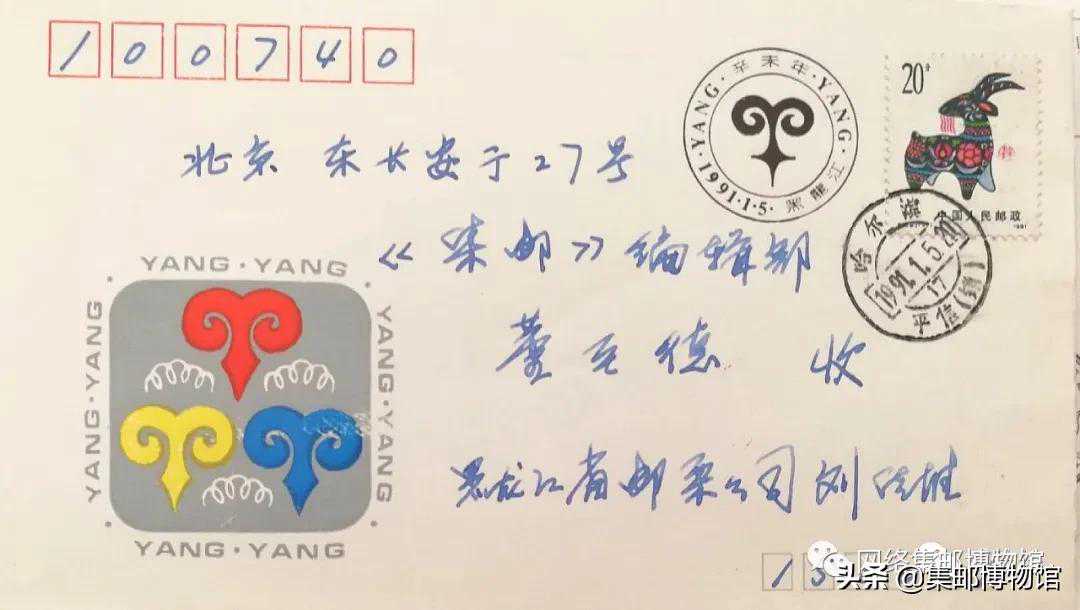 100740
·YANG·辛未年·YANG·
1991·1·5·
黑龍江
20分
中国人民邮政
1991
北京 东长安于27号
《集邮》编辑部
董玉德 收
黑龙江省邮票公司刘
哈尔滨
1991.1.5.20
17
平信
YANG·YANG
YANG·YANG
YANG·YANG
YANG·YANG
15
网络集邮博物馆
头条 @集邮博物馆